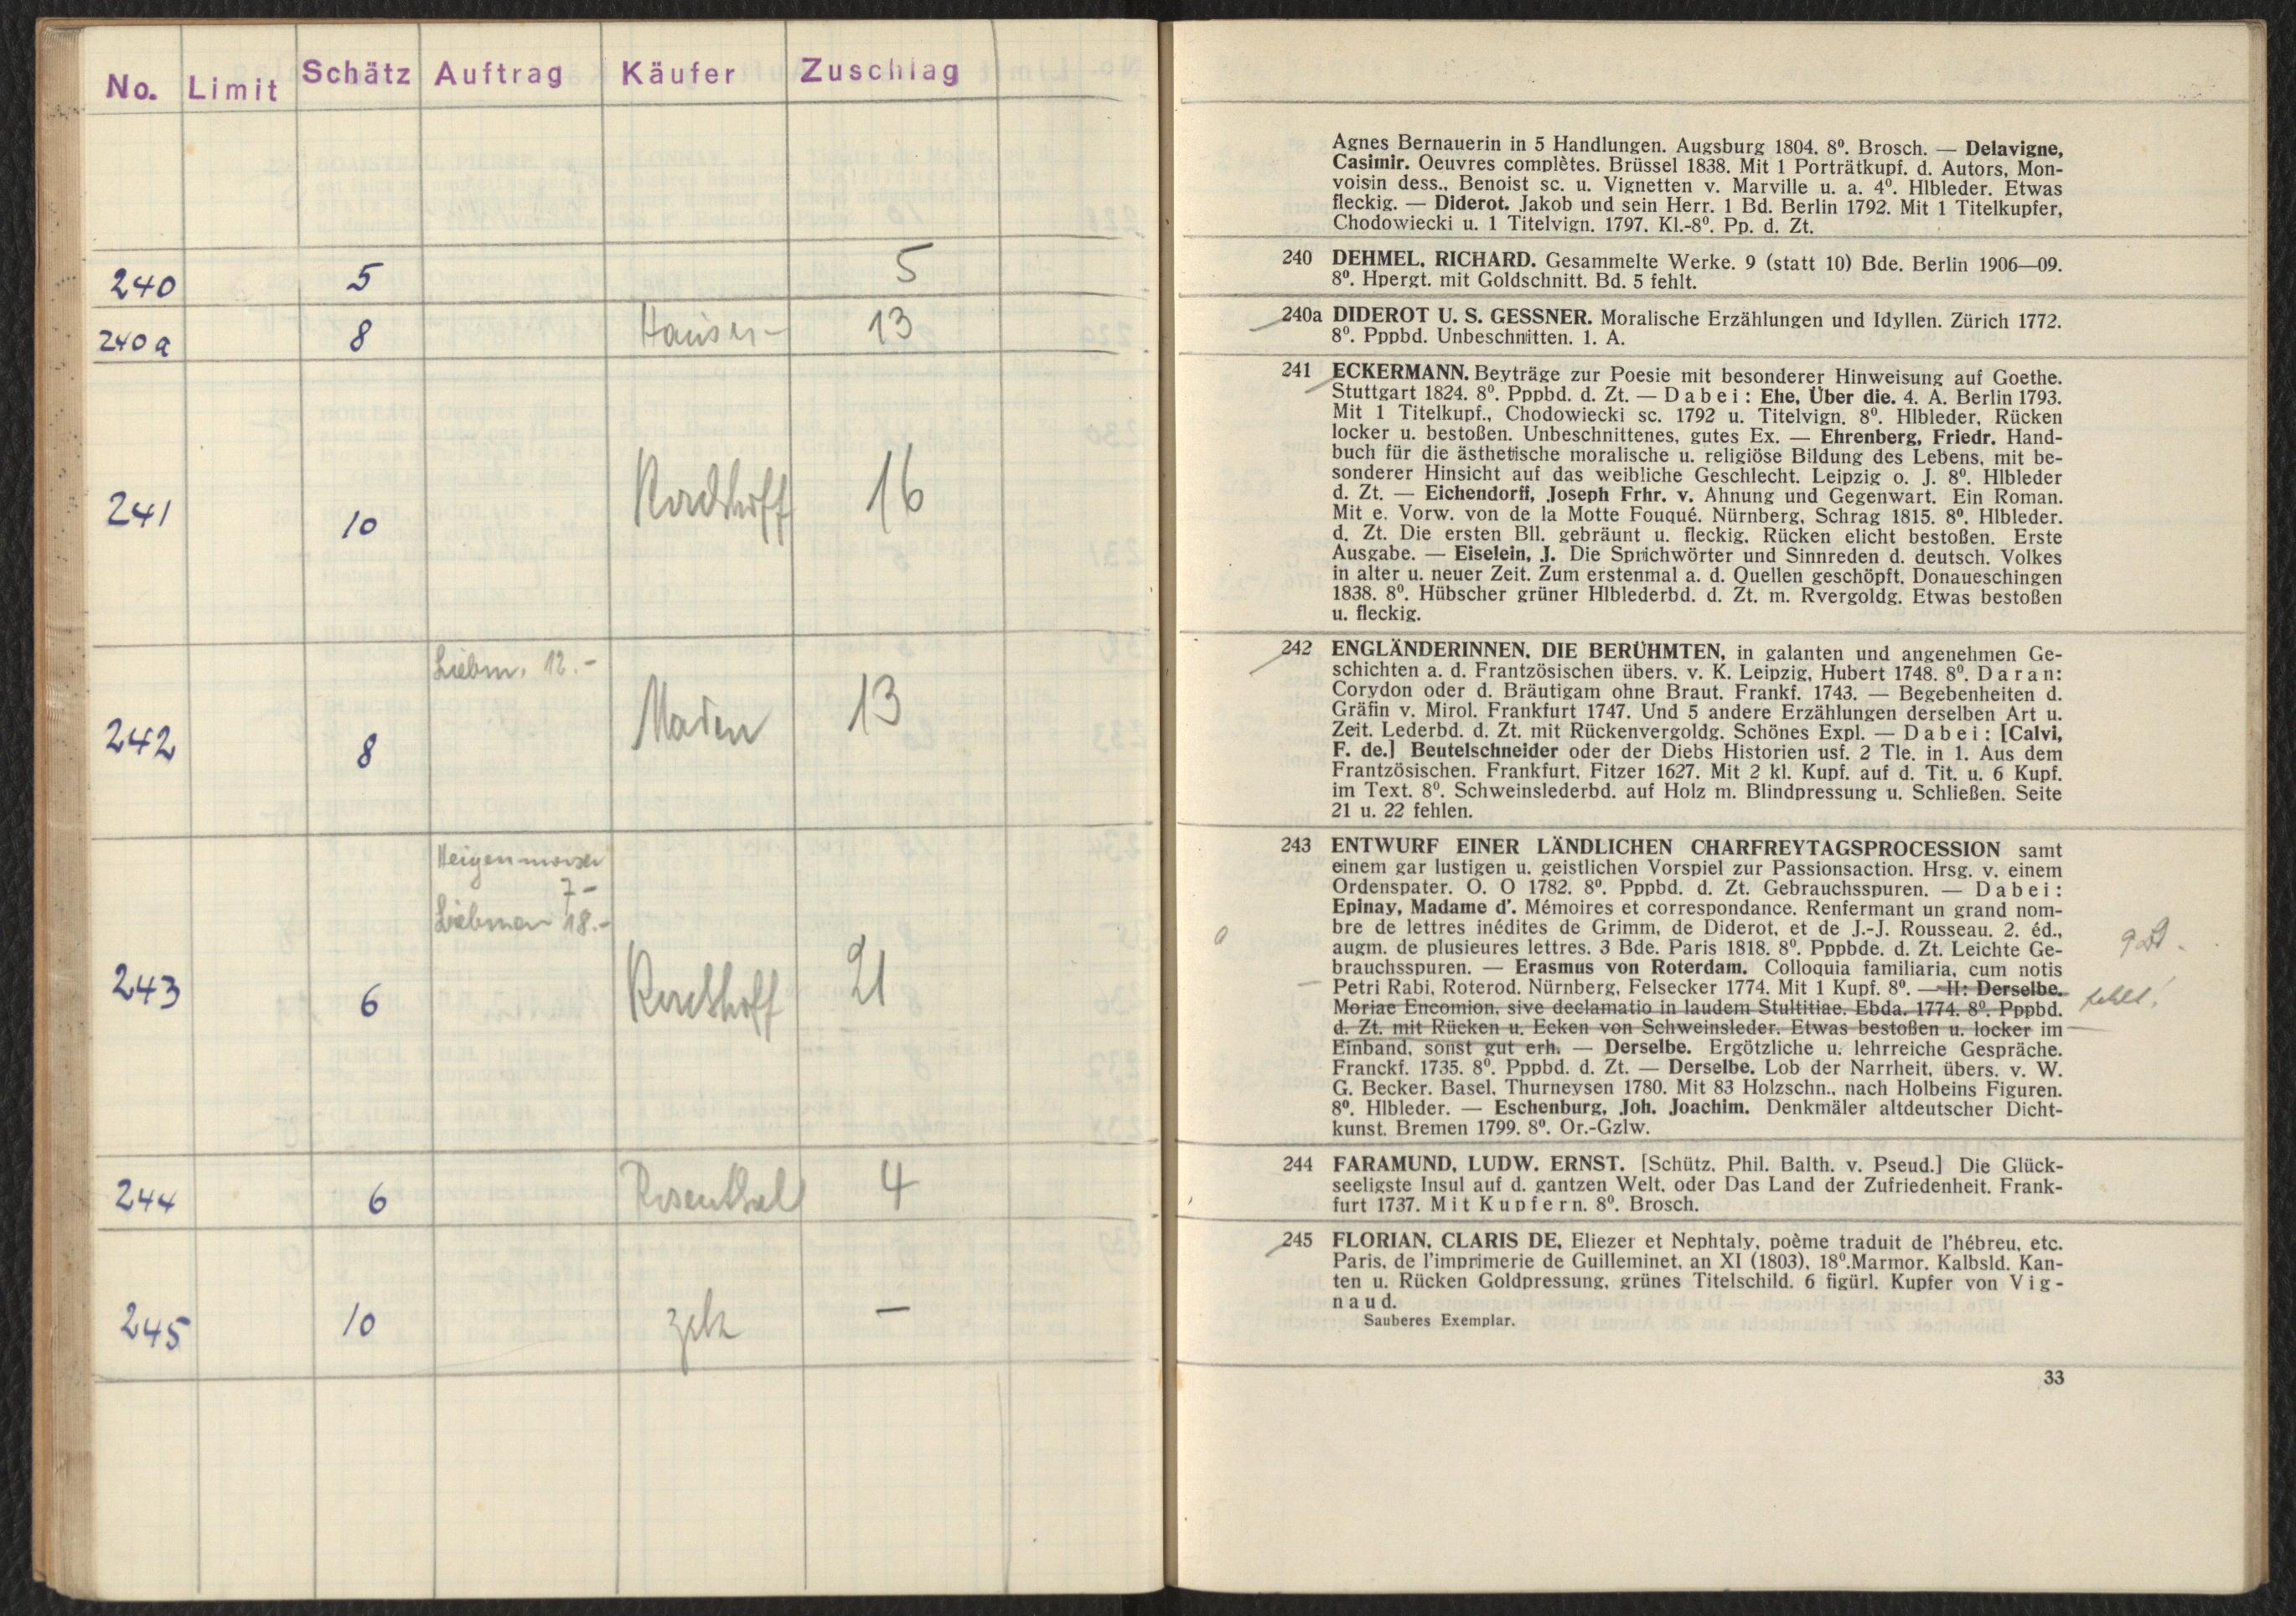 No. Limit Schätz Auftrag Käufer Zuschlag
240 5 5
240a 8 Hauser- 13
241 10 Kirchhoff 16
Liebm. 12.-
242 8 13
7-
Liebman 18.-
243 6 Kirchhoff 21
244 6 Rosenthal 4
245 10 zck —
Agnes Bernauerin in 5 Handlungen. Augsburg 1804. 8⁰. Brosch. — Delavigne,
Casimir. Oeuvres complètes. Brüssel 1838. Mit 1 Porträtkupf. d. Autors, Mon-
voisin dess., Benoist sc. u. Vignetten v. Marville u. a. 4⁰. Hlbleder. Etwas
fleckig. — Diderot. Jakob und sein Herr. 1 Bd. Berlin 1792. Mit 1 Titelkupfer,
Chodowiecki u. 1 Titelvign. 1797. Kl.-8⁰. Pp. d. Zt.
240 DEHMEL, RICHARD. Gesammelte Werke. 9 (statt 10) Bde. Berlin 1906—09.
8⁰. Hpergt. mit Goldschnitt. Bd. 5 fehlt.
240a DIDEROT U. S. GESSNER. Moralische Erzählungen und Idyllen. Zürich 1772.
8⁰. Pppbd. Unbeschnitten. 1. A.
241 ECKERMANN. Beyträge zur Poesie mit besonderer Hinweisung auf Goethe.
Stuttgart 1824. 8⁰. Pppbd. d. Zt. — Dabei: Ehe, Über die. 4. A. Berlin 1793.
Mit 1 Titelkupf., Chodowiecki sc. 1792 u. Titelvign. 8⁰. Hlbleder, Rücken
locker u. bestoßen. Unbeschnittenes, gutes Ex. — Ehrenberg, Friedr. Hand-
buch für die ästhetische moralische u. religiöse Bildung des Lebens, mit be-
sonderer Hinsicht auf das weibliche Geschlecht. Leipzig o. J. 8⁰. Hlbleder
d. Zt. — Eichendorff, Joseph Frhr. v. Ahnung und Gegenwart. Ein Roman.
Mit e. Vorw. von de la Motte Fouqué. Nürnberg, Schrag 1815. 8⁰. Hlbleder.
d. Zt. Die ersten Bll. gebräunt u. fleckig. Rücken elicht bestoßen. Erste
Ausgabe. — Eiselein, J. Die Sprichwörter und Sinnreden d. deutsch. Volkes
in alter u. neuer Zeit. Zum erstenmal a. d. Quellen geschöpft. Donaueschingen
1838. 8⁰. Hübscher grüner Hlblederbd. d. Zt. m. Rvergoldg. Etwas bestoßen
u. fleckig.
242 ENGLÄNDERINNEN, DIE BERÜHMTEN, in galanten und angenehmen Ge-
schichten a. d. Frantzösischen übers. v. K. Leipzig, Hubert 1748. 8⁰. Daran:
Corydon oder d. Bräutigam ohne Braut. Frankf. 1743. — Begebenheiten d.
Gräfin v. Mirol. Frankfurt 1747. Und 5 andere Erzählungen derselben Art u.
Zeit. Lederbd. d. Zt. mit Rückenvergoldg. Schönes Expl. — Dabei: [Calvi,
F. de.] Beutelschneider oder der Diebs Historien usf. 2 Tle. in 1. Aus dem
Frantzösischen. Frankfurt, Fitzer 1627. Mit 2 kl. Kupf. auf d. Tit. u. 6 Kupf.
im Text. 8⁰. Schweinslederbd. auf Holz m. Blindpressung u. Schließen. Seite
21 u. 22 fehlen.
243 ENTWURF EINER LÄNDLICHEN CHARFREYTAGSPROCESSION samt
einem gar lustigen u. geistlichen Vorspiel zur Passionsaction. Hrsg. v. einem
Ordenspater. O. O 1782. 8⁰. Pppbd. d. Zt. Gebrauchsspuren. — Dabei:
Epinay, Madame d'. Mémoires et correspondance. Renfermant un grand nom-
bre de lettres inédites de Grimm, de Diderot, et de J.-J. Rousseau. 2. éd.,
augm. de plusieures lettres. 3 Bde. Paris 1818. 8⁰. Pppbde. d. Zt. Leichte Ge-
brauchsspuren. — Erasmus von Roterdam. Colloquia familiaria, cum notis
Petri Rabi, Roterod. Nürnberg, Felsecker 1774. Mit 1 Kupf. 8⁰. — II: Derselbe.
fehlt!
Moriae Encomion, sive declamatio in laudem Stultitiae. Ebda. 1774. 8⁰. Pppbd.
d. Zt. mit Rücken u. Ecken von Schweinsleder. Etwas bestoßen u. locker im
Einband, sonst gut erh. — Derselbe. Ergötzliche u. lehrreiche Gespräche.
Franckf. 1735. 8⁰. Pppbd. d. Zt. — Derselbe. Lob der Narrheit, übers. v. W.
G. Becker. Basel, Thurneysen 1780. Mit 83 Holzschn., nach Holbeins Figuren.
8⁰. Hlbleder. — Eschenburg, Joh. Joachim. Denkmäler altdeutscher Dicht-
kunst. Bremen 1799. 8⁰. Or.-Gzlw.
244 FARAMUND, LUDW. ERNST. [Schütz, Phil. Balth. v. Pseud.] Die Glück-
seeligste Insul auf d. gantzen Welt, oder Das Land der Zufriedenheit. Frank-
furt 1737. Mit Kupfern. 8⁰. Brosch.
245 FLORIAN, CLARIS DE, Eliezer et Nephtaly, poème traduit de l'hébreu, etc.
Paris, de l'imprimerie de Guilleminet, an XI (1803), 18⁰.Marmor. Kalbsld. Kan-
ten u. Rücken Goldpressung, grünes Titelschild. 6 figürl. Kupfer von Vig-
naud.
Sauberes Exemplar.
33